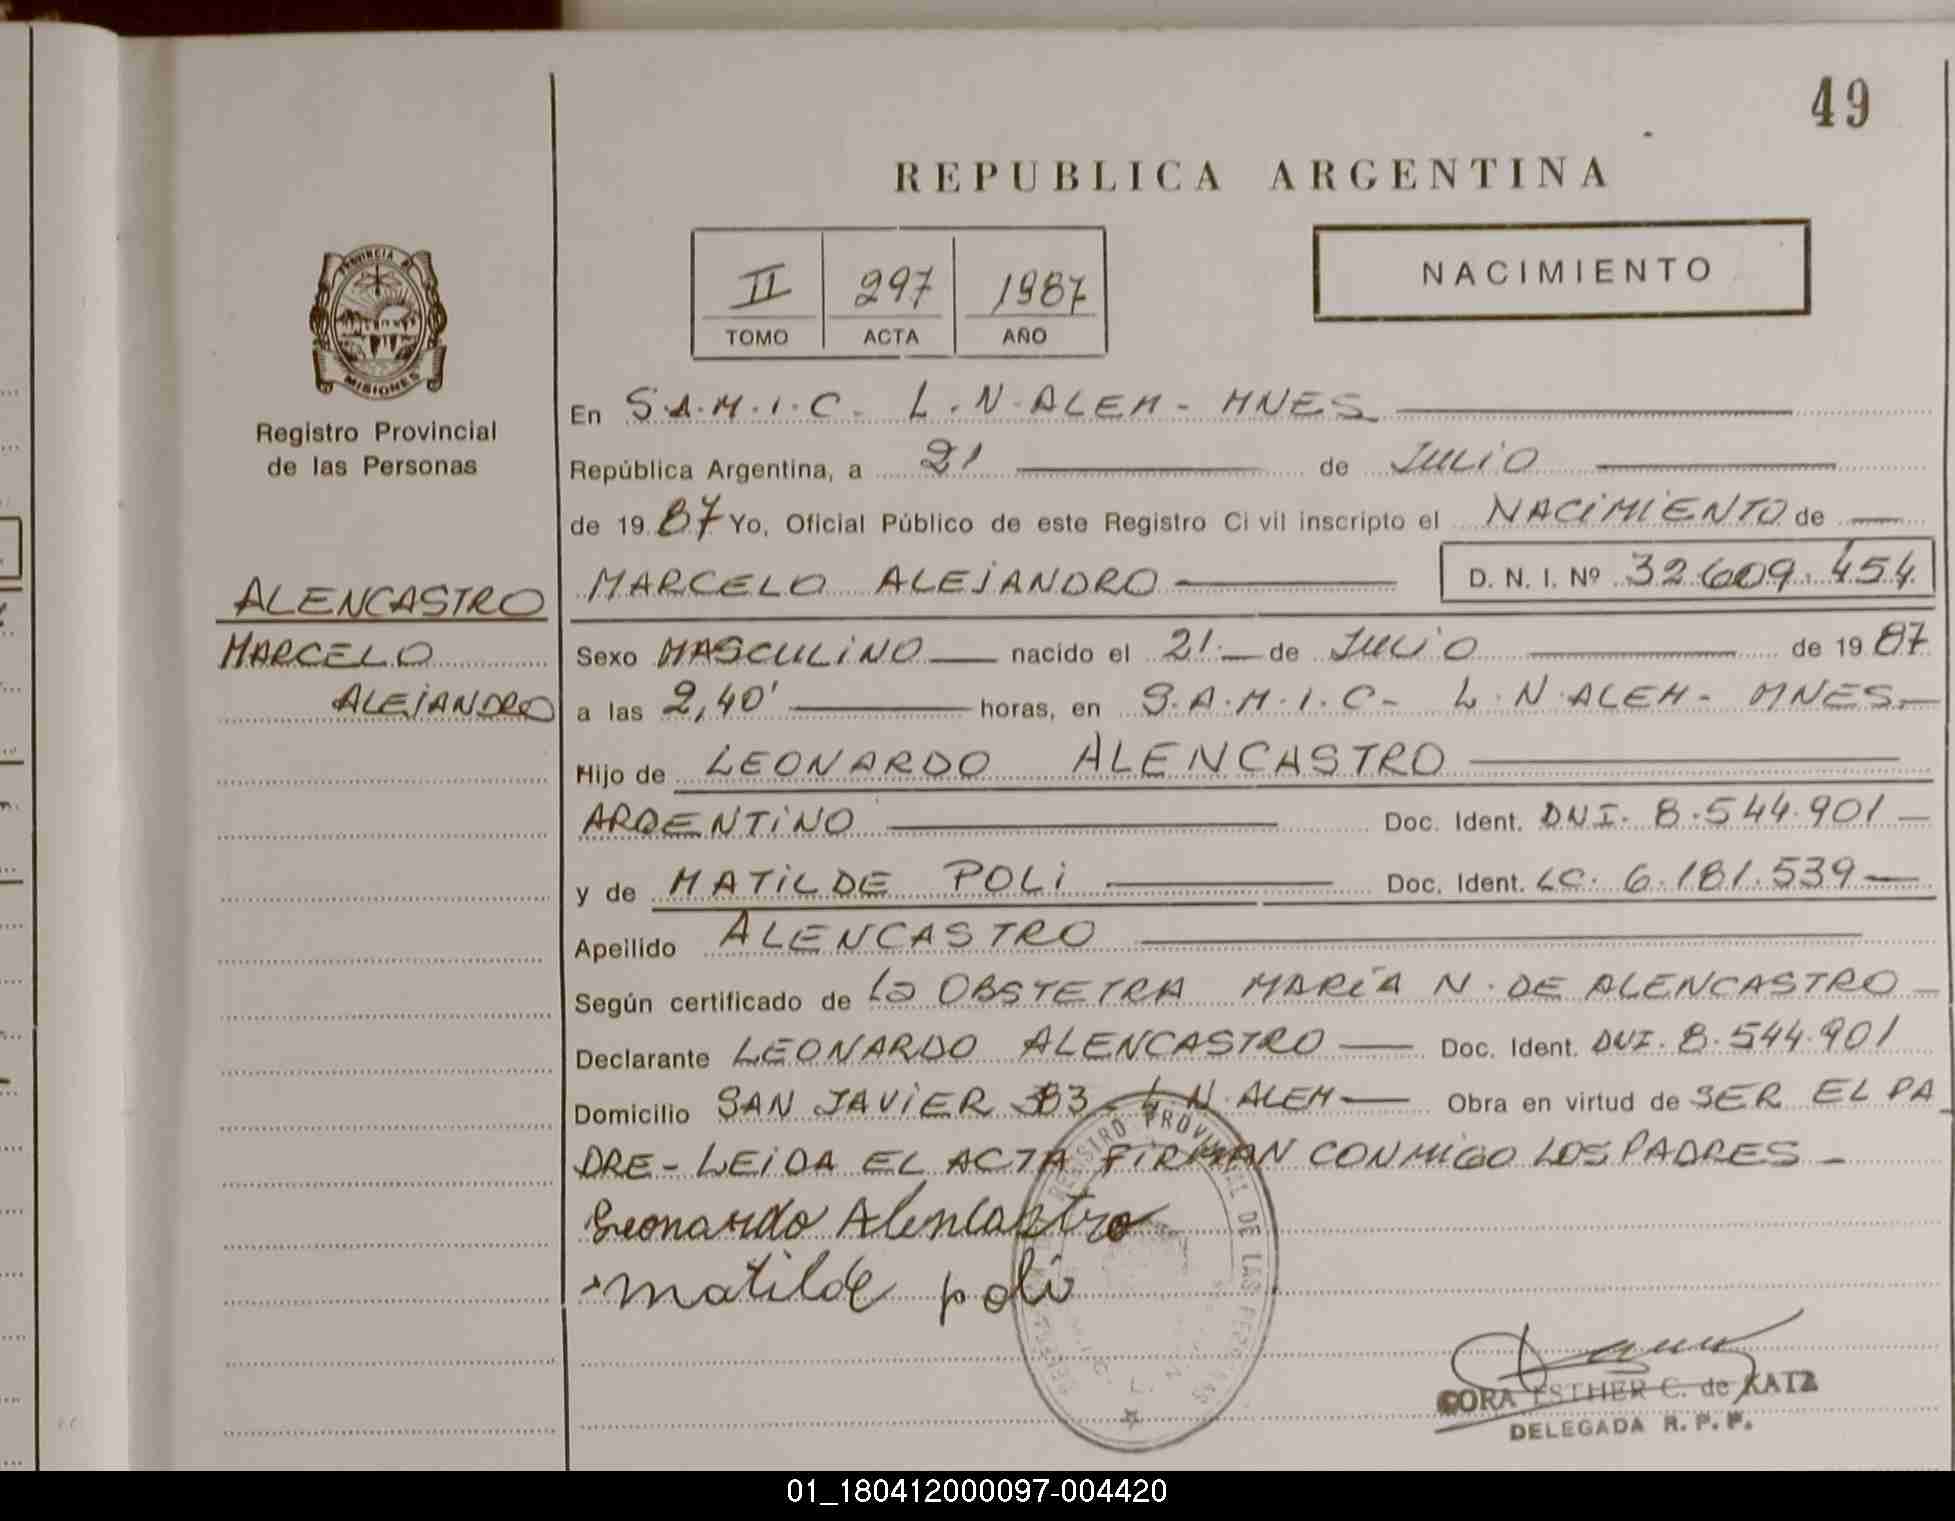 49
REPUBLICA ARGENTINA
II 297 1987
TOMO ACTA AÑO
NACIMIENTO
PROVINCIA DE
MISIONES
Registro Provincial
de las Personas
ALENCASTRO
MARCELO
ALEJANDRO
En S.A.M.I.C. L.N.ALEM - MNES
República Argentina, a 21 de JULIO
de 1987 Yo, Oficial Público de este Registro Civil inscripto el NACIMIENTO de
MARCELO ALEJANDRO D. N. I. Nº 32.609.454
Sexo MASCULINO nacido el 21 de JULIO de 1987
a las 2,40' horas, en S.A.M.I.C - L.N.ALEM - MNES.
Hijo de LEONARDO ALENCASTRO
ARGENTINO Doc. Ident. DNI. 8.544.901
y de MATILDE POLI Doc. Ident. LC. 6.181.539
Apellido ALENCASTRO
Según certificado de La OBSTETRA MARÍA N. DE ALENCASTRO
Declarante LEONARDO ALENCASTRO Doc. Ident. DNI. 8.544.901
Domicilio SAN JAVIER 383 - L.N.ALEM Obra en virtud de SER EL PA
DRE - LEIDA EL ACTA FIRMAN CONMIGO LOS PADRES -
Leonardo Alencastro
matilde poli
REGISTRO PROVINCIAL DE LAS PERSONAS
CORA ESTHER C. de KATZ
DELEGADA R. P. P.
01_180412000097-004420